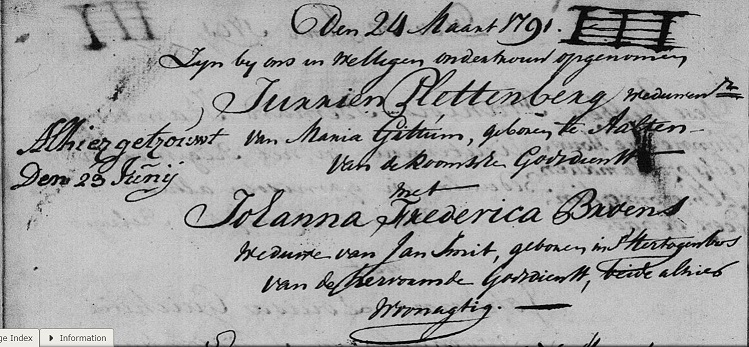 Den 24 Maart 1791.
III
Zyn by ons in Wettigen ondertrouw opgenomen
Jurrien Plettenberg, weduwenr
van Maria Gittum, geboren te Aalten
van de Roomsche Godsdienst
met
Johanna Frederica Buvens
weduwe van Jan Smit, geboren in s'Hertogenbos
van de Hervormde Godsdienst, beide alhier
Woonagtig.
Alhier getrouwt
Den 23 Junij
ge Index
Information